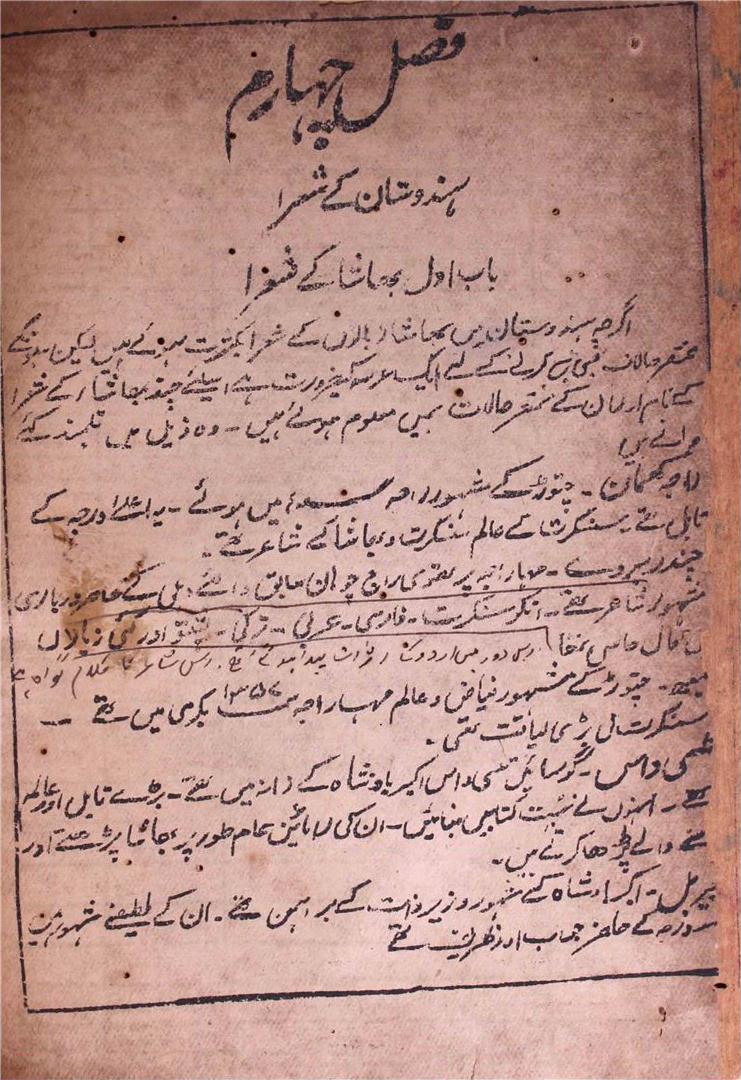 فصل چہارم
ہندوستان کے شعرا
باب اول بھاشا کے شعرا
اگرچہ ہندوستان میں بھاشا زبان کے شعرا بکثرت ہوئے ہیں لیکن
مختصر حالات کرنے کے لئے ایک عرصہ کی ضرورت ہے اسلئے چند بھاشا کے شعرا
کے نام اور ان کے مختصر حالات ہمیں معلوم ہوئے ہیں ۔ وہ ذیل میں قلمبند کئے
جاتے ہیں
راجہ کھمان ۔ چتوڑ کے مشہور راجہ میں ہوئے ۔ یہ اعلےٰ درجہ کے
قابل تھے ۔ سنسکرت کے عالم سنسکرت و بھاشا کے شاعر تھے ۔
چندر ۔ مہاراجہ پرتھوی راج چوہان سابق والئے دہلی کے خاص درباری
مشہور شاعر تھے ۔ سنسکرت ۔ فارسی ۔ عربی ۔ ترکی ۔ پشتو اور کئی زبان
کمال حاصل تھا اسی دور میں اردو کے اثرات پیدا ہو گئے تھے ۔ اس شاعر کا کلام گواہ ہے
۔ چتوڑ کے مشہور فیاض و عالم مہاراجہ سمت بکرمی میں تھے ۔
سنسکرت میں بڑی لیاقت تھی ۔
تلسی داس ۔ گوسائیں تلسی داس اکبر بادشاہ کے زمانہ میں تھے ۔ بڑے قابل اور عالم
تھے ۔ انہوں نے بہت کتابیں بنائیں ۔ ان کی رامائن عام طور پر بھاشا پڑھتے اور
والے پڑھا کرتے ہیں ۔
بیربل ۔ اکبر بادشاہ کے مشہور وزیر ذات کے برہمن تھے ۔ ان کے لطیفے مشہور ہیں
کے حاضر جواب اور ظریف تھے